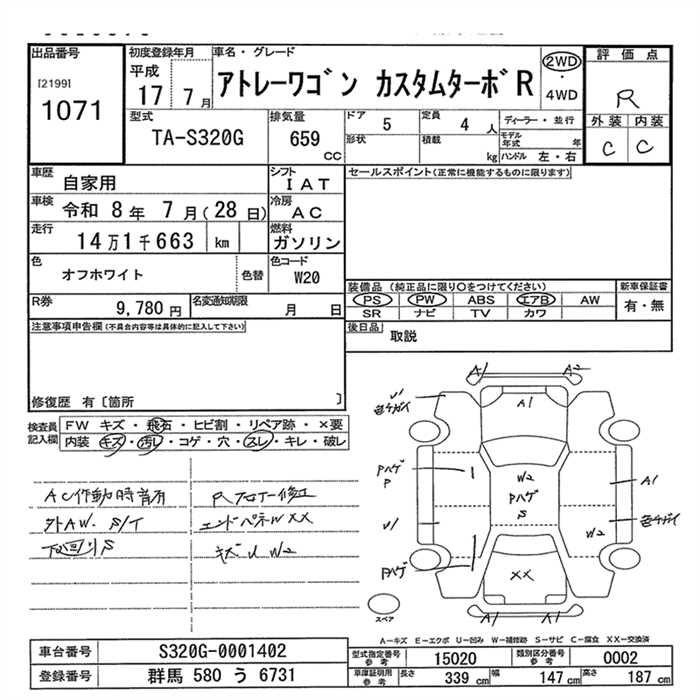 出品番号
[2199]
1071
初度登録年月
平成
17 7月
車名・グレード
アトレーワゴン カスタムターボR
2WD
・
4WD
評価点
R
外装 内装
C C
型式
TA-S320G
排気量
659
CC
ドア
5
定員
4 人
形状
積載
kg
ディーラー・並行
モデル
年式 年
ハンドル 左・右
車歴
自家用
シフト
IAT
車検
令和 8年 7月(28日)
冷房
AC
走行
14万1千663 km
燃料
ガソリン
色
オフホワイト
色替
色コード
W20
R券
9,780円
名変通知期限
月 日
セールスポイント(正常に機能するものに限ります)
装備品 (純正品に限り○をつけてください)
PS PW ABS エアB AW
SR ナビ TV カワ
新車保証書
有・無
後日品
取説
注意事項申告欄(不具合内容等は具体的に記入して下さい)
修復歴 有〔箇所 〕
検査員
記入欄
FW キズ・飛石・ヒビ割・リペア跡・×要
内装 キズ・汚レ・コゲ・穴・スレ・キレ・破レ
AC作動時音有
外AW. S/T
下廻りS
Rフロアー修正
エンドパネW XX
キズU W2
A1 A2
U1
色チガイ
A1
Pハゲ
P
W2
Pハゲ
S
A1
U1
色チガイ
W2
Pハゲ
XX
A1 A1
スペア
A－キズ E－エクボ U－凹み W－補修跡 S－サビ C－腐食 XX－交換済
車台番号
S320G-0001402
登録番号
群馬 580 う 6731
型式指定番号
参考
15020
類別区分番号
参考
0002
車庫証明用
参考
長さ
339 cm
幅
147 cm
高さ
187 cm